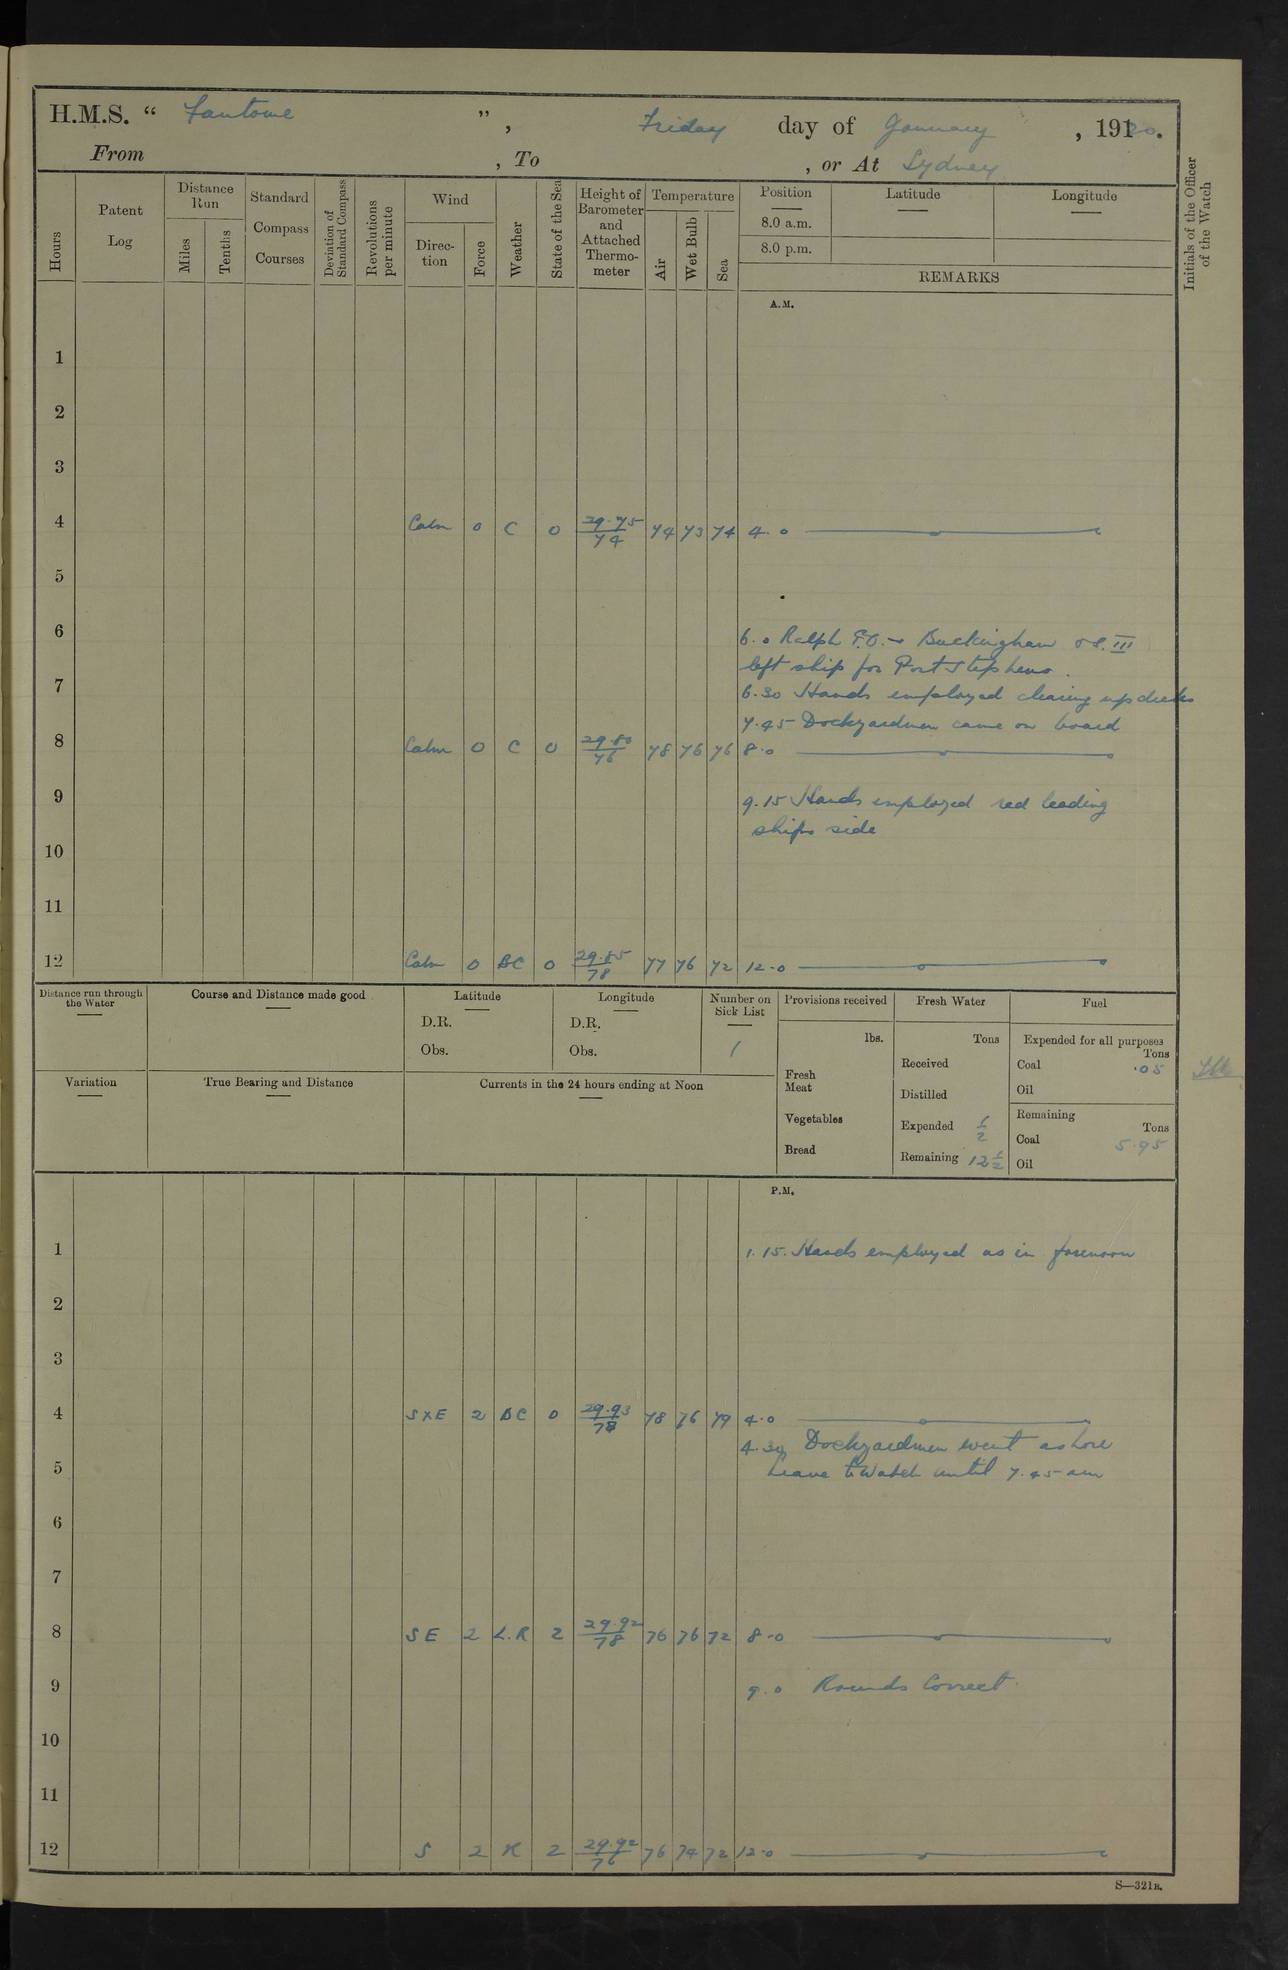 H.M.S. “ Fantome ”, Friday day of January , 1920.
From , To , or At Sydney
Hours
Patent Log
Distance Run
Miles
Tenths
Standard Compass Courses
Deviation of Standard Compass
Revolutions per minute
Wind
Direc-tion
Force
Weather
State of the Sea
Height of Barometer and Attached Thermo-meter
Temperature
Air
Wet Bulb
Sea
Position
8.0 a.m.
8.0 p.m.
Latitude
Longitude
REMARKS
Initials of the Officer of the Watch
A.M.
1
2
3
4 Calm 0 C 0 29.75/74 74 73 74 4.0
5
6 6.0 Ralph Buckingham III
left ship for Port Stephens.
7 6.30 Hands employed clearing up decks
7.45 Dockyardmen came on board
8 Calm 0 C 0 29.80/76 78 76 76 8.0
9 9.15 Hands employed red leading
ships side
10
11
12 Calm 0 BC 0 29.85/78 77 76 72 12.0
Distance run through the Water
Course and Distance made good
Latitude
D.R.
Obs.
Longitude
D.R.
Obs.
Number on Sick List
1
Provisions received
lbs.
Fresh Meat
Vegetables
Bread
Fresh Water
Tons
Received
Distilled
Expended 1/2
Remaining 12 1/2
Fuel
Expended for all purposes
Tons
Coal .05
Oil
Remaining
Tons
Coal 5.95
Oil
Variation
True Bearing and Distance
Currents in the 24 hours ending at Noon
P.M.
1 1.15. Hands employed as in forenoon
2
3
4 SXE 2 BC 0 29.93/78 78 76 79 4.0
4.30 Dockyardmen went ashore
5 Leave to Watch until 7.45 am
6
7
8 SE 2 L.R 2 29.92/78 76 76 72 8.0
9 9.0 Rounds Correct.
10
11
12 S 2 R 2 29.92/76 76 74 72 12.0
S—321B.